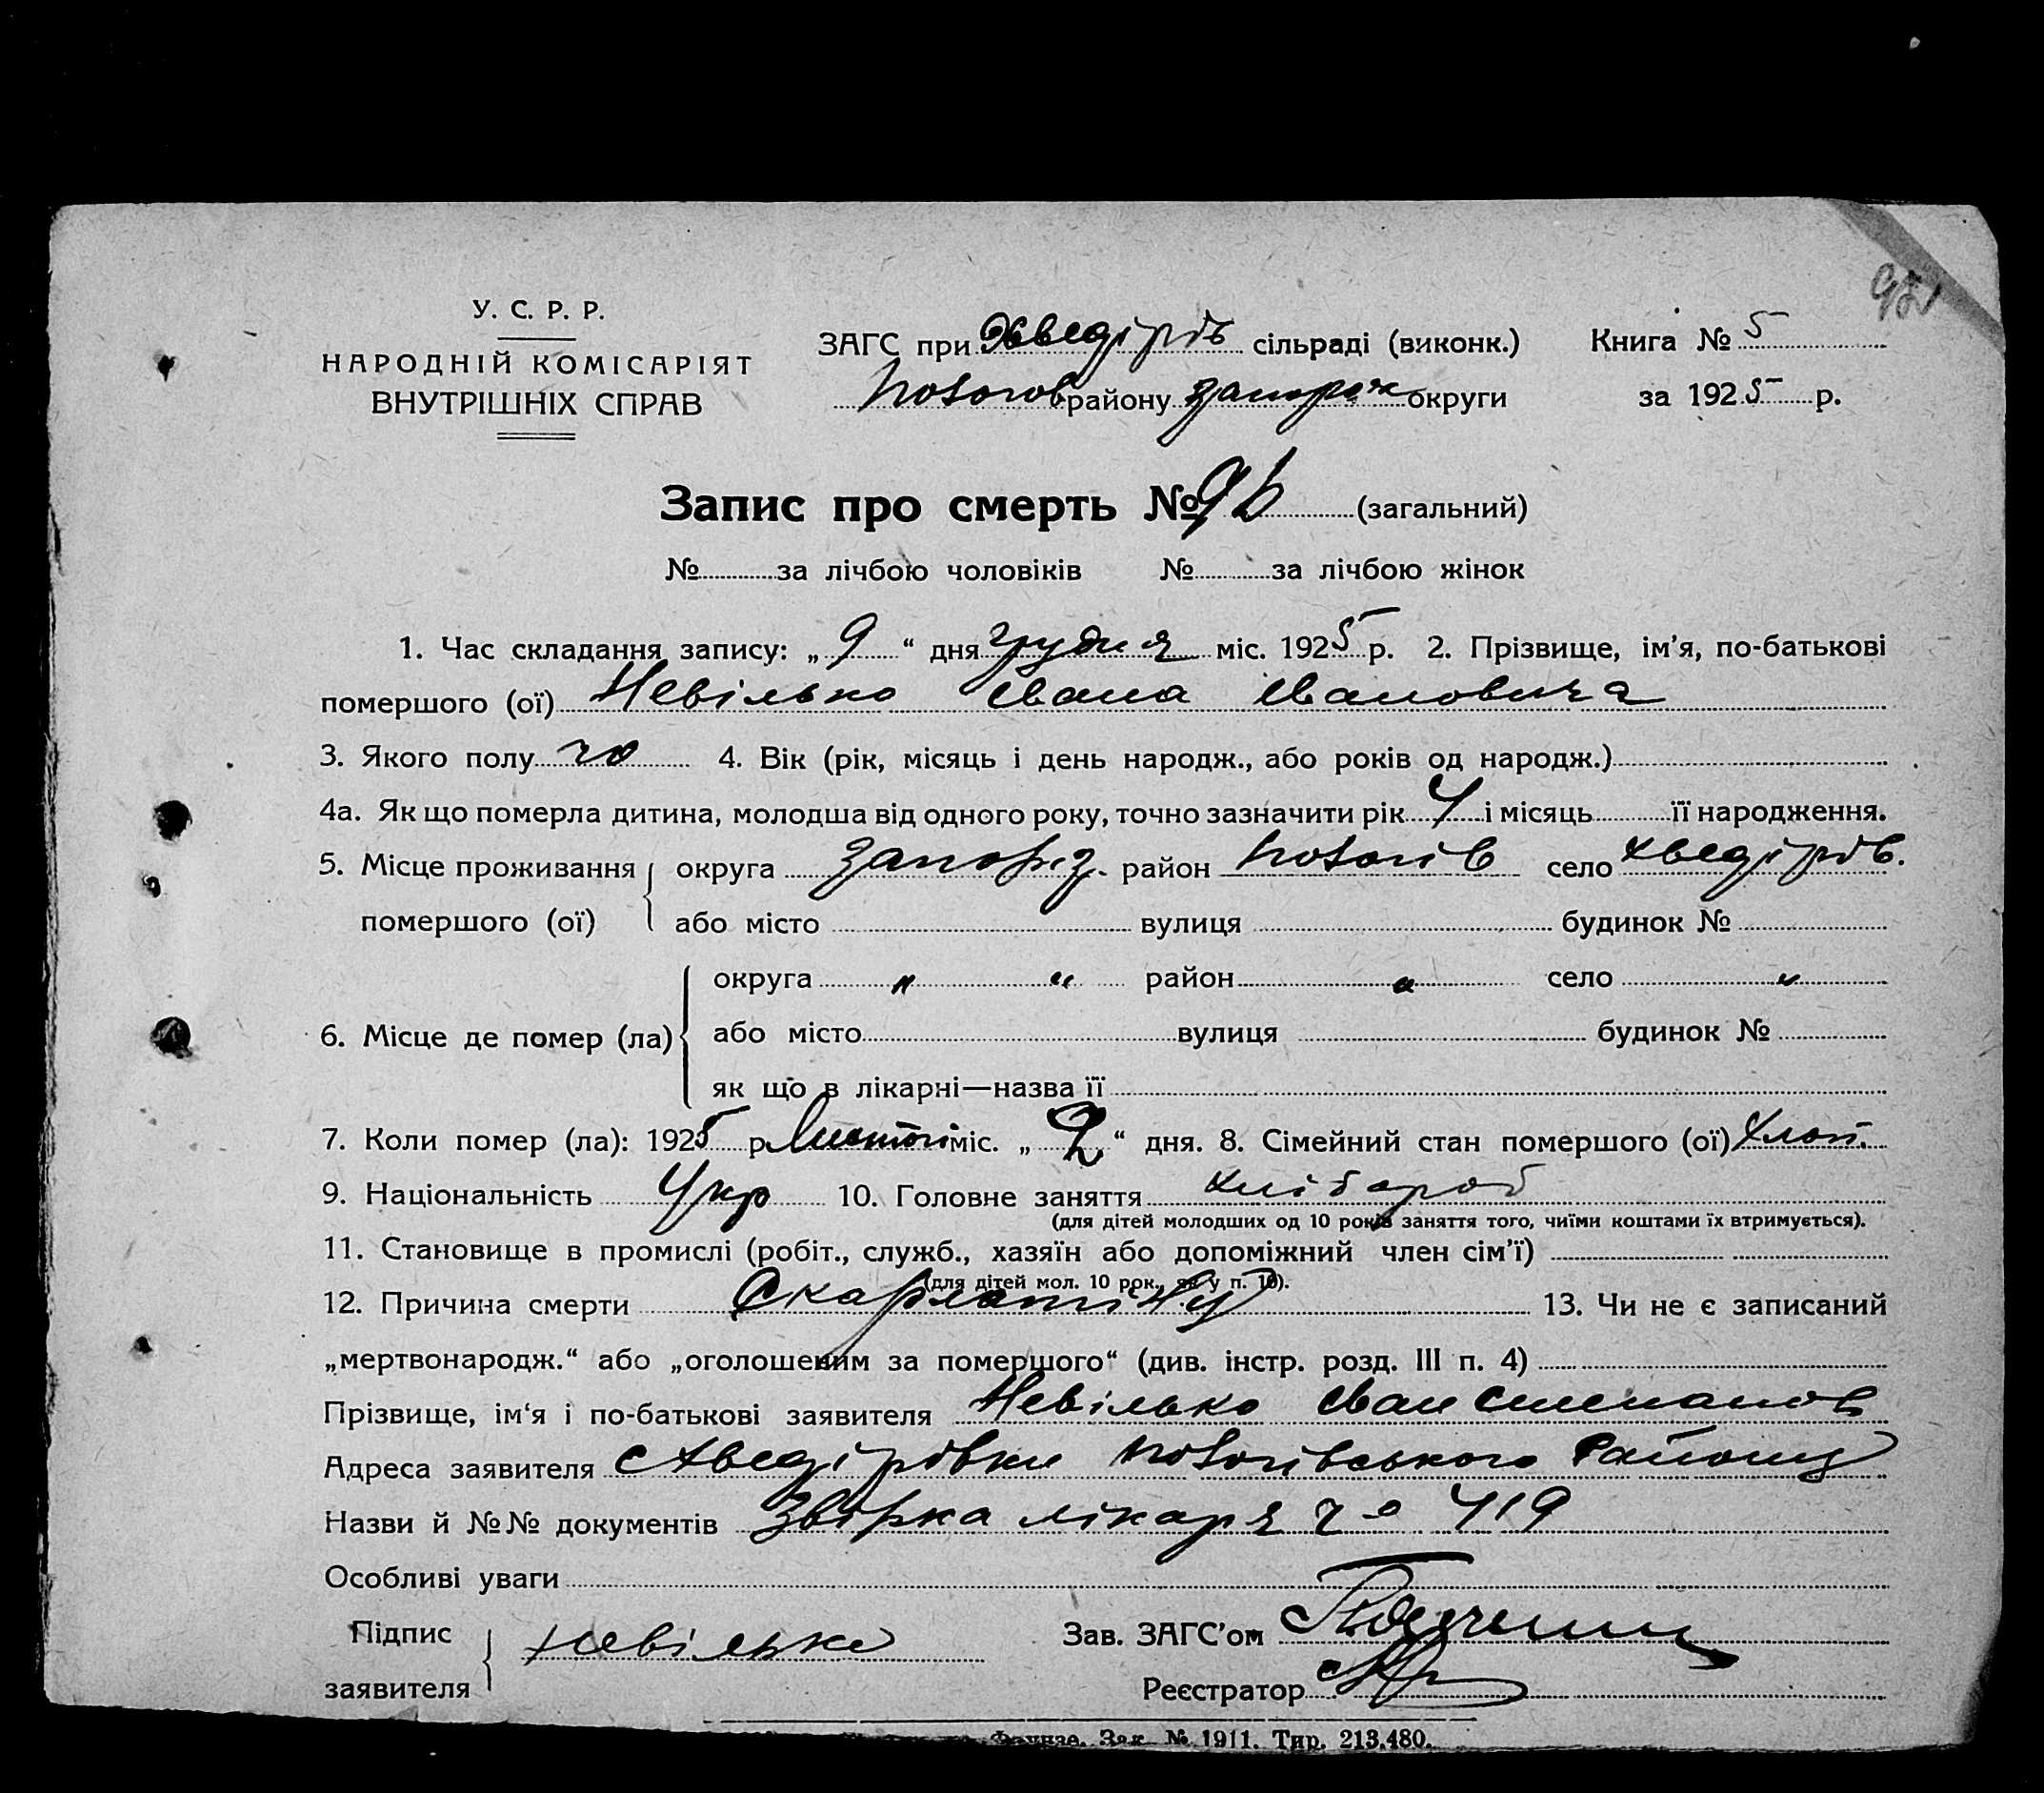 951
У. С. Р. Р.
НАРОДНІЙ КОМІСАРІЯТ
ВНУТРІШНІХ СПРАВ
ЗАГС при Хведірів сільраді (виконк.) Книга № 5
району Запоріж округи за 1925 р.
Запис про смерть № (загальний)
№ за лічбою чоловіків № за лічбою жінок
1. Час складання запису: „ 9 “ дня грудня міс. 1925 р. 2. Прізвище, ім’я, по-батькові
помершого (ої) Невілько Івана Івановича
3. Якого полу чо 4. Вік (рік, місяць і день народж., або років од народж.)
4а. Як що померла дитина, молодша від одного року, точно зазначити рік 4 і місяць її народження.
5. Місце проживання округа Запоріз. район село Хведірів.
помершого (ої) або місто вулиця будинок №
округа „ “ район “ село “
6. Місце де помер (ла) або місто вулиця будинок №
як що в лікарні—назва її
7. Коли помер (ла): 1925 р. міс. „ 2 “ дня. 8. Сімейний стан помершого (ої) Хлоп.
9. Національність Укр 10. Головне заняття хлібороб
(для дітей молодших од 10 років заняття того, чиїми коштами їх втримується).
11. Становище в промислі (робіт., служб., хазяїн або допоміжний член сім’ї)
(для дітей мол. 10 рок., як у п. 10).
12. Причина смерти Скарлатіну 13. Чи не є записаний
„мертвонародж.“ або „оголошеним за помершого“ (див. інстр. розд. III п. 4)
Прізвище, ім‘я і по-батькові заявителя Невілько Іван Степанов
Адреса заявителя с Хведірівки Району
Назви й №№ документів лікаря ч-о 419
Особливі уваги
Підпис Невілько Зав. ЗАГС’ом
заявителя Реєстратор
Фрунзе. Зак. № 1911. Тир. 213.480.